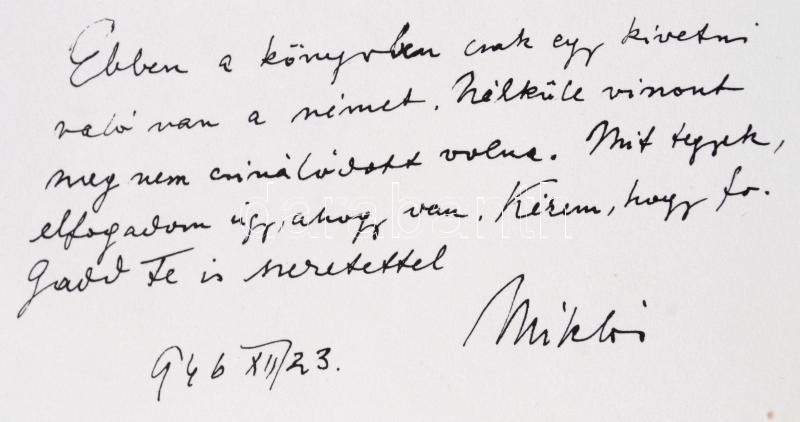 Ebben a könyvben csak egy kivetni
való van a német. Nélküle viszont
meg nem csinálódott volna. Mit tegyek,
elfogadom úgy, ahogy van. Kérem, hogy fo-
gadd Te is szeretettel
Miklós
946 XII/23.
darabanth